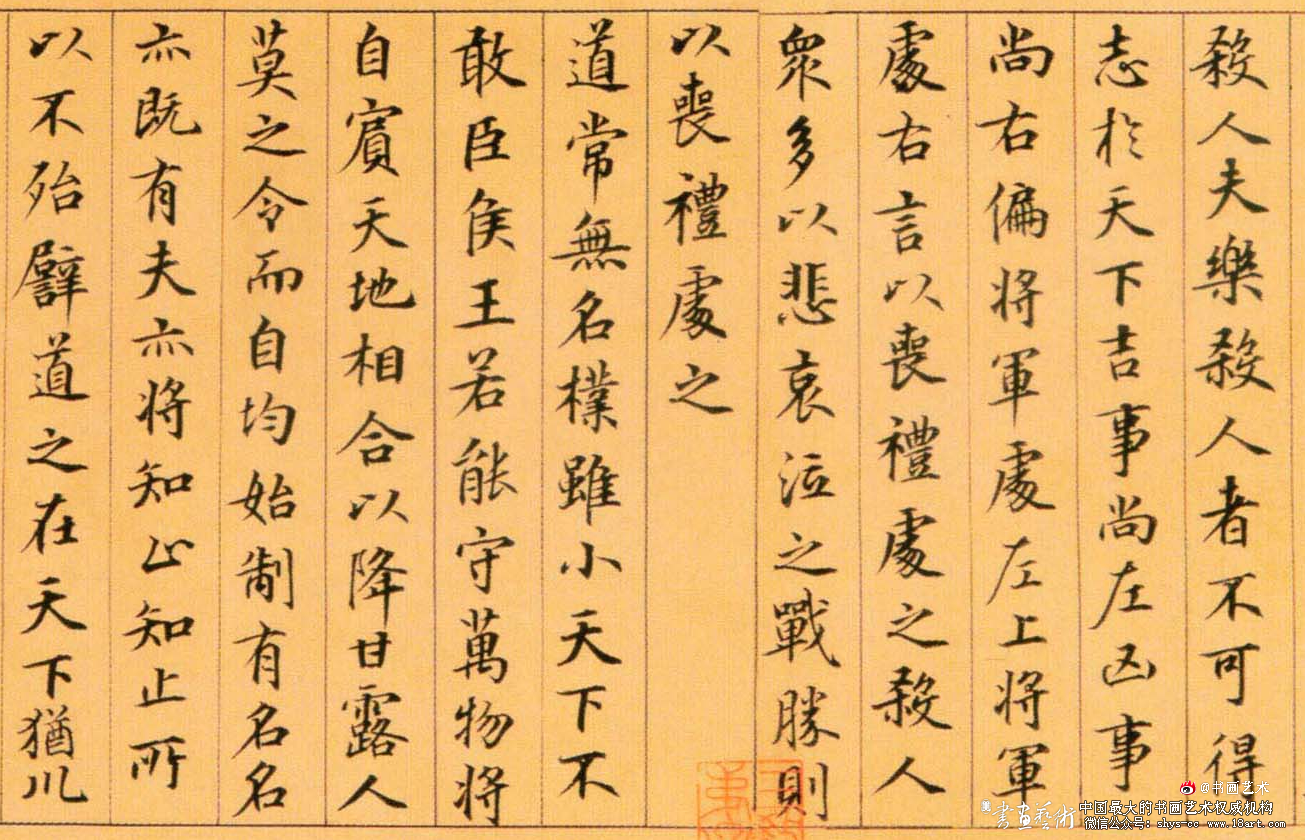 殺人夫樂殺人者不可得
志於天下吉事尚左凶事
尚右偏将軍處左上将軍
處右言以喪禮處之殺人
衆多以悲哀泣之戰勝則
以喪禮處之
道常無名樸雖小天下不
敢臣侯王若能守萬物将
自賓天地相合以降甘露人
莫之令而自均始制有名名
亦既有夫亦将知止知止所
以不殆譬道之在天下猶川
@书画艺术
書畫藝術
中国最大的书画艺术权威机构
微信公众号：shys-cc www.18art.com